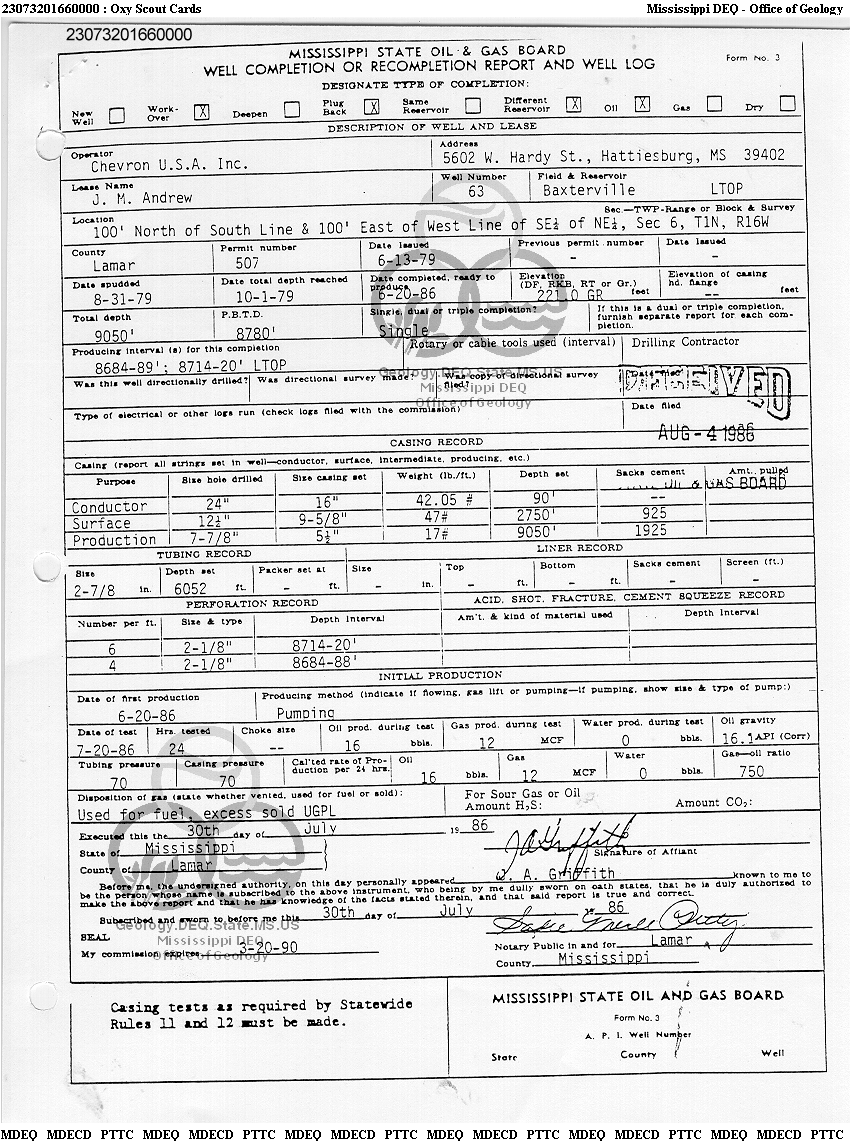 23073201660000 : Oxy Scout Cards Mississippi DEQ - Office of Geology
23073201660000
MISSISSIPPI STATE OIL & GAS BOARD
WELL COMPLETION OR RECOMPLETION REPORT AND WELL LOG Form No. 3
DESIGNATE TYPE OF COMPLETION:
New Well Work-Over X Deepen Plug Back X Same Reservoir Different Reservoir X Oil X Gas Dry
DESCRIPTION OF WELL AND LEASE
Operator Address
Chevron U.S.A. Inc. 5602 W. Hardy St., Hattiesburg, MS 39402
Lease Name Well Number Field & Reservoir
J. M. Andrew 63 Baxterville LTOP
Location Sec.—TWP-Range or Block & Survey
100' North of South Line & 100' East of West Line of SE¼ of NE¼, Sec 6, T1N, R16W
County Permit number Date Issued Previous permit number Date Issued
Lamar 507 6-13-79 - -
Date spudded Date total depth reached Date completed, ready to produce Elevation (DF, RKB, RT or Gr.) feet Elevation of casing hd. flange feet
8-31-79 10-1-79 6-20-86 221.0 GR --
Total depth P.B.T.D. Single, dual or triple completion? If this is a dual or triple completion, furnish separate report for each completion.
9050' 8780' Single
Producing interval (s) for this completion Rotary or cable tools used (interval) Drilling Contractor
8684-89'; 8714-20' LTOP
Geology.DEQ.State.MS.US
Mississippi DEQ
Office of Geology
Was this well directionally drilled? Was directional survey made? Was copy of directional survey filed? Date filed
RECEIVED
Type of electrical or other logs run (check logs filed with the commission) Date filed
AUG - 4 1986
CASING RECORD
Casing (report all strings set in well—conductor, surface, intermediate, producing, etc.)
Purpose Size hole drilled Size casing set Weight (lb./ft.) Depth set Sacks cement Amt. pulled
OIL & GAS BOARD
Conductor 24" 16" 42.05 # 90' --
Surface 12¼" 9-5/8" 47# 2750' 925
Production 7-7/8" 5½" 17# 9050' 1925
TUBING RECORD LINER RECORD
Size Depth set Packer set at Size Top Bottom Sacks cement Screen (ft.)
2-7/8 in. 6052 ft. - ft. - in. - ft. - ft. - -
PERFORATION RECORD ACID, SHOT, FRACTURE, CEMENT SQUEEZE RECORD
Number per ft. Size & type Depth Interval Am't. & kind of material used Depth Interval
6 2-1/8" 8714-20'
4 2-1/8" 8684-88'
INITIAL PRODUCTION
Date of first production Producing method (indicate if flowing, gas lift or pumping—if pumping, show size & type of pump:)
6-20-86 Pumping
Date of test Hrs. tested Choke size Oil prod. during test Gas prod. during test Water prod. during test Oil gravity
7-20-86 24 -- 16 bbls. 12 MCF 0 bbls. 16.1 API (Corr)
Tubing pressure Casing pressure Cal'ted rate of Production per 24 hrs. Oil Gas Water Gas—oil ratio
70 70 16 bbls. 12 MCF 0 bbls. 750
Disposition of gas (state whether vented, used for fuel or sold): For Sour Gas or Oil
Used for fuel, excess sold UGPL Amount H₂S: Amount CO₂:
Executed this the 30th day of July 19 86
State of Mississippi Signature of Affiant
County of Lamar
Before me, the undersigned authority, on this day personally appeared W. A. Griffith known to me to
be the person whose name is subscribed to the above instrument, who being by me dully sworn on oath states, that he is duly authorized to
make the above report and that he has knowledge of the facts stated therein, and that said report is true and correct.
Subscribed and sworn to before me this 30th day of July 19 86
Geology.DEQ.State.MS.US
SEAL
Mississippi DEQ
Notary Public in and for Lamar
My commission expires 3-20-90
Office of Geology
County Mississippi
Casing tests as required by Statewide
Rules 11 and 12 must be made.
MISSISSIPPI STATE OIL AND GAS BOARD
Form No. 3
A. P. I. Well Number
State County Well
MDEQ MDECD PTTC MDEQ MDECD PTTC MDEQ MDECD PTTC MDEQ MDECD PTTC MDEQ MDECD PTTC MDEQ MDECD PTTC MDEQ